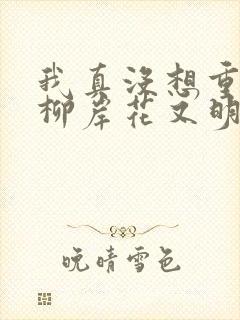 我真没想重
柳岸花又明
晚晴雪色